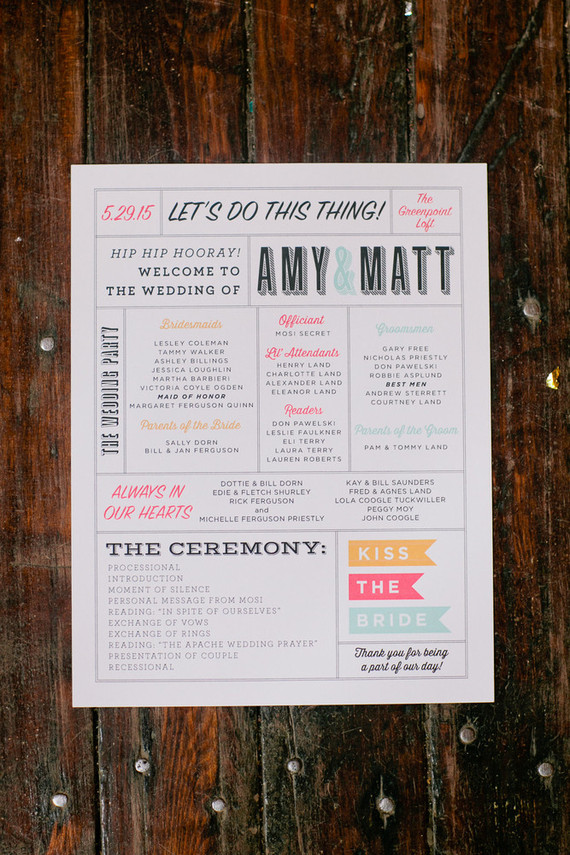 5.29.15
LET'S DO THIS THING!
The
Greenpoint
Loft
HIP HIP HOORAY!
WELCOME TO
THE WEDDING OF
AMY & MATT
THE WEDDING PARTY
Bridesmaids
LESLEY COLEMAN
TAMMY WALKER
ASHLEY BILLINGS
JESSICA LOUGHLIN
MARTHA BARBIERI
VICTORIA COYLE OGDEN
MAID OF HONOR
MARGARET FERGUSON QUINN
Parents of the Bride
SALLY DORN
BILL & JAN FERGUSON
Officiant
MOSI SECRET
Lil' Attendants
HENRY LAND
CHARLOTTE LAND
ALEXANDER LAND
ELEANOR LAND
Readers
DON PAWELSKI
LESLIE FAULKNER
ELI TERRY
LAURA TERRY
LAUREN ROBERTS
Groomsmen
GARY FREE
NICHOLAS PRIESTLY
DON PAWELSKI
ROBBIE ASPLUND
BEST MEN
ANDREW STERRETT
COURTNEY LAND
Parents of the Groom
PAM & TOMMY LAND
ALWAYS IN
OUR HEARTS
DOTTIE & BILL DORN
EDIE & FLETCH SHURLEY
RICK FERGUSON
and
MICHELLE FERGUSON PRIESTLY
KAY & BILL SAUNDERS
FRED & AGNES LAND
LOLA COOGLE TUCKWILLER
PEGGY MOY
JOHN COOGLE
THE CEREMONY:
PROCESSIONAL
INTRODUCTION
MOMENT OF SILENCE
PERSONAL MESSAGE FROM MOSI
READING: "IN SPITE OF OURSELVES"
EXCHANGE OF VOWS
EXCHANGE OF RINGS
READING: "THE APACHE WEDDING PRAYER"
PRESENTATION OF COUPLE
RECESSIONAL
KISS
THE
BRIDE
Thank you for being
a part of our day!